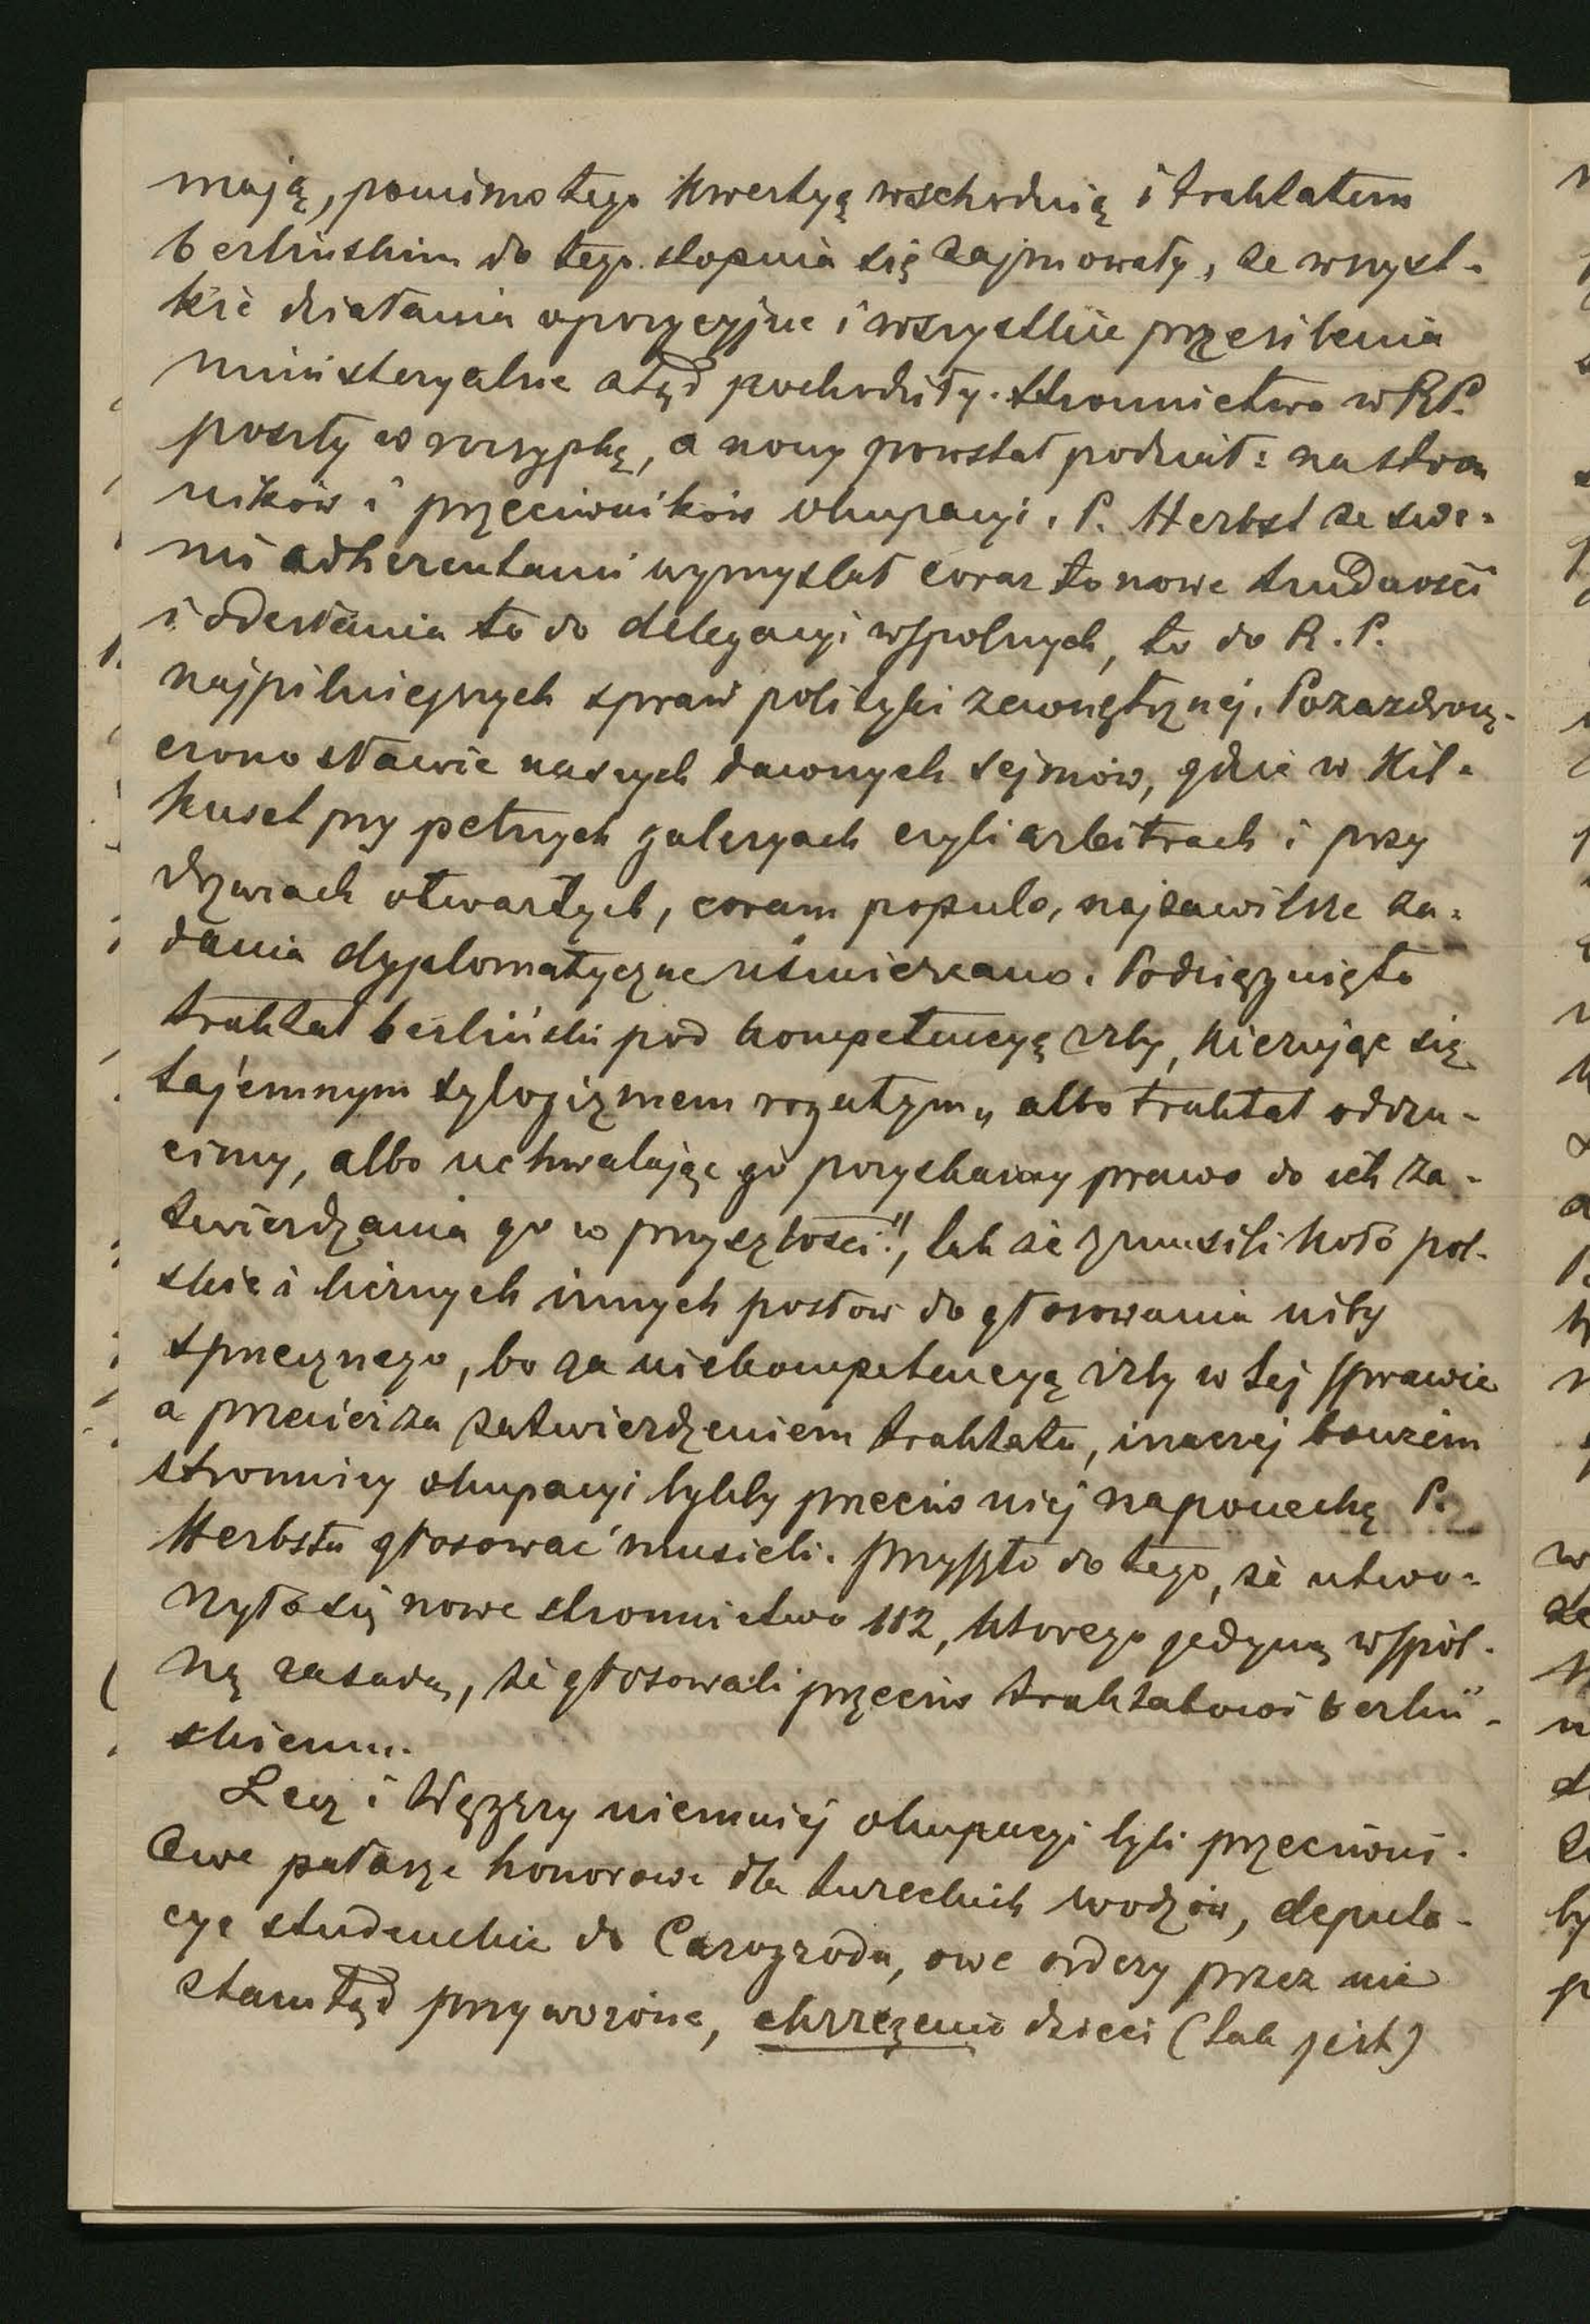 mają, pomimo tego kwestyą wschodnią i traktatem
berlińskim do tego stopnia się zajmowały, że wszyst-
kie działania opozycyjne i wszystkie przesilenia
ministeryalne stąd pochodziły. Stronnictwa w RP.
poszły w rozsypkę, a nowy powstał podział: na stron
ników i przeciwników okupacyi. P. Herbst ze swe-
mi adherentami wymyślał coraz to nowe trudności
i odesłania to do delegacyi wspólnych, to do R. P.
najpilniejszych spraw polityki zewnętrznéj. Pozazdrosz-
czono sławie naszych dawnych sejmów, gdzie w kil-
kuset przy pełnych galeryach czyli arbitrach i przy
drzwiach otwartych, coram populo, najzawilsze za-
dania dyplomatyczne uśmiercano. Podciągnięto
traktat berliński pod kompetencyę izby, kierując się
tajemnym sylogizmem rogatym „albo traktat odrzu-
cimy, albo uchwalając go pozyskamy prawo do ich za-
twierdzania go w przyszłości", tak że zmusili koło pol-
skie i licznych innych posłów do głosowania niby
sprzecznego, bo za niekompetencyą izby w tej sprawie
a przecież za zatwierdzeniem traktatu, inaczéj bowiem
stronnicy okupacyi byliby przeciw niéj na pociechę P.
Herbsta głosować musieli. Przyszło do tego, że utwo-
rzyło się nowe stronnictwo 112, którego jedyną wspól-
ną zasadą, że głosowali przeciw traktatowi berliń-
skiemu.
Lecz i Węgrzy niemniéj okupacyi byli przeciwni.
Owe pałasze honorowe dla tureckich wodzów, deputa-
cye studenckie do Carogrodu, owe ordery przez nie
stamtąd przywożone, chrzczenie dzieci (tak jest)